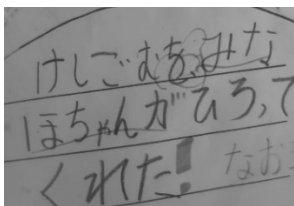 けしごむを、みな
ほちゃんがひろって
くれた! なお